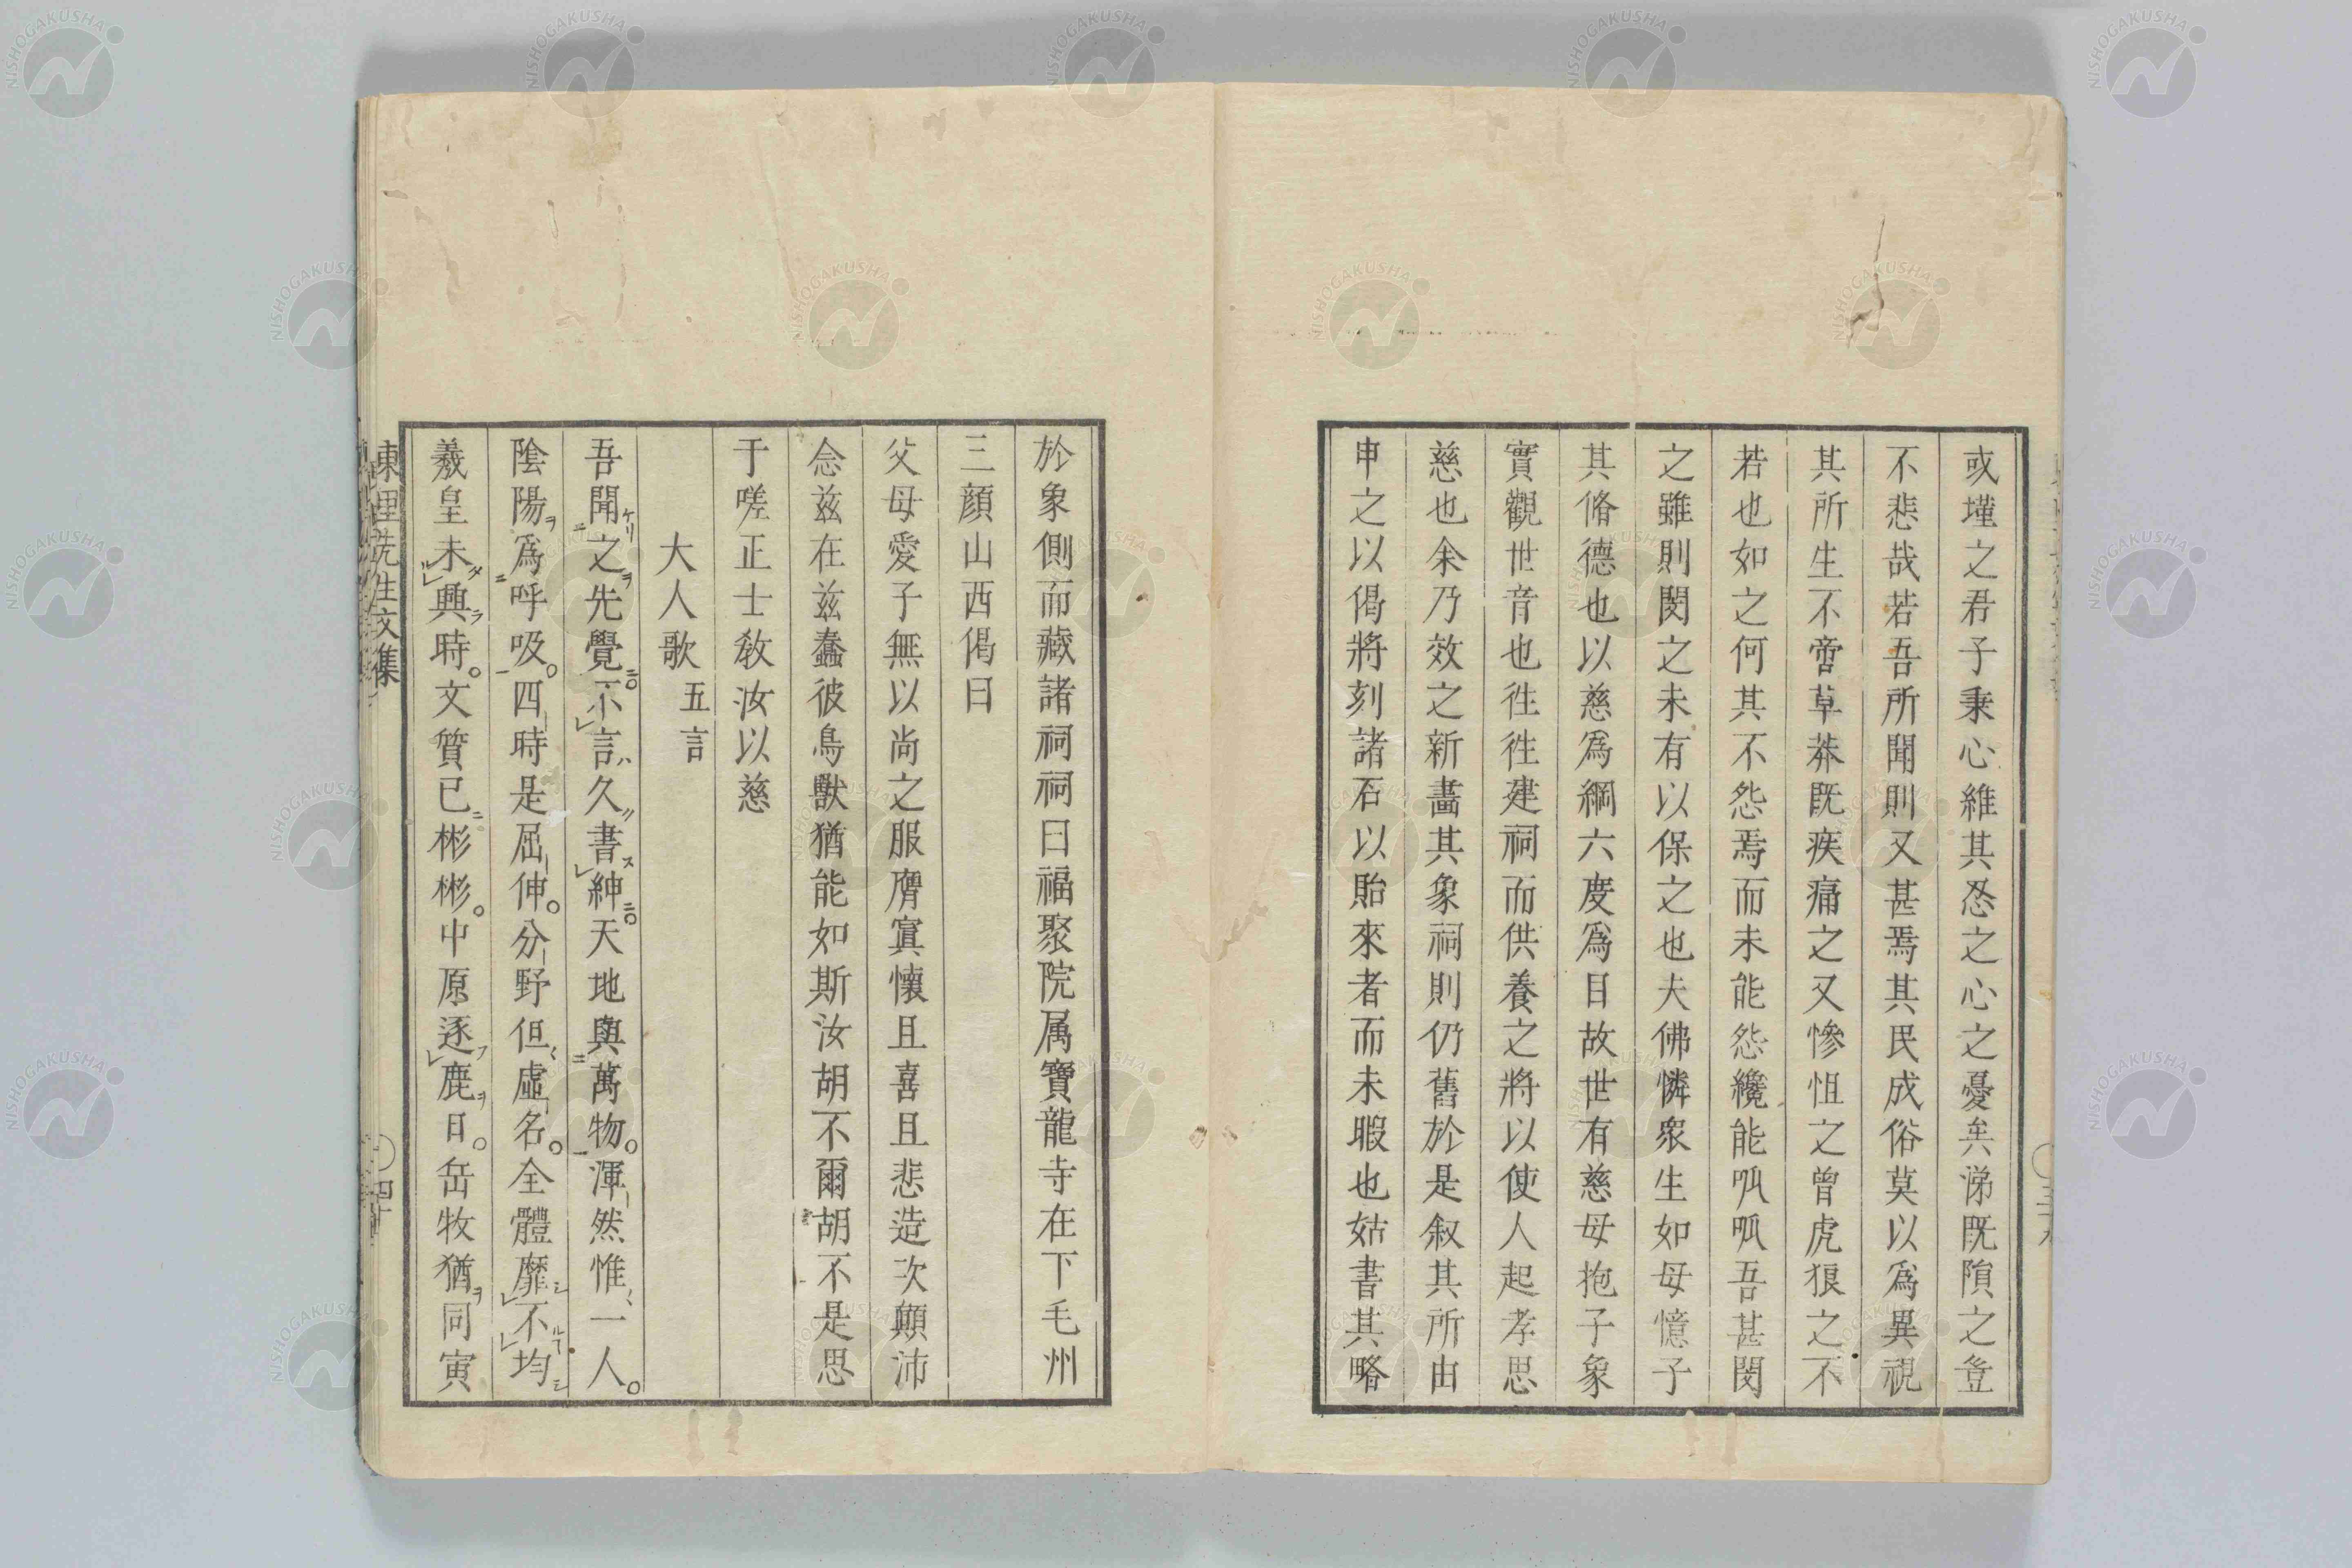 或墐之君子秉心維其忍之心之憂矣涕既隕之豈
不悲哉若吾所聞則又甚焉其民成俗莫以爲異視
其所生不啻草莽既疾痛之又慘怛之曾虎狼之不
若也如之何其不怨焉而未能怨纔能呱呱吾甚閔
之雖則閔之未有以保之也夫佛憐衆生如母憶子
其脩德也以慈爲綱六度爲目故世有慈母抱子象
實觀世音也徃徃建祠而供養之將以使人起孝思
慈也余乃效之新畫其象祠則仍舊於是叙其所由
申之以偈將刻諸石以貽來者而未暇也姑書其略
於象側而藏諸祠祠曰福聚院属寶龍寺在下毛州
三顔山西偈曰
父母愛子無以尚之服膺寘懷且喜且悲造次顛沛
念兹在兹蠢彼鳥獸猶能如斯汝胡不爾胡不是思
于嗟正士教汝以慈
大人歌 五言
吾聞之先覺不言久書紳天地與萬物渾然惟一人
陰陽爲呼吸四時是屈伸分野但虛名全體靡不均
羲皇未興時文質已彬彬中原逐鹿日岳牧猶同寅
東里先生文集
四十